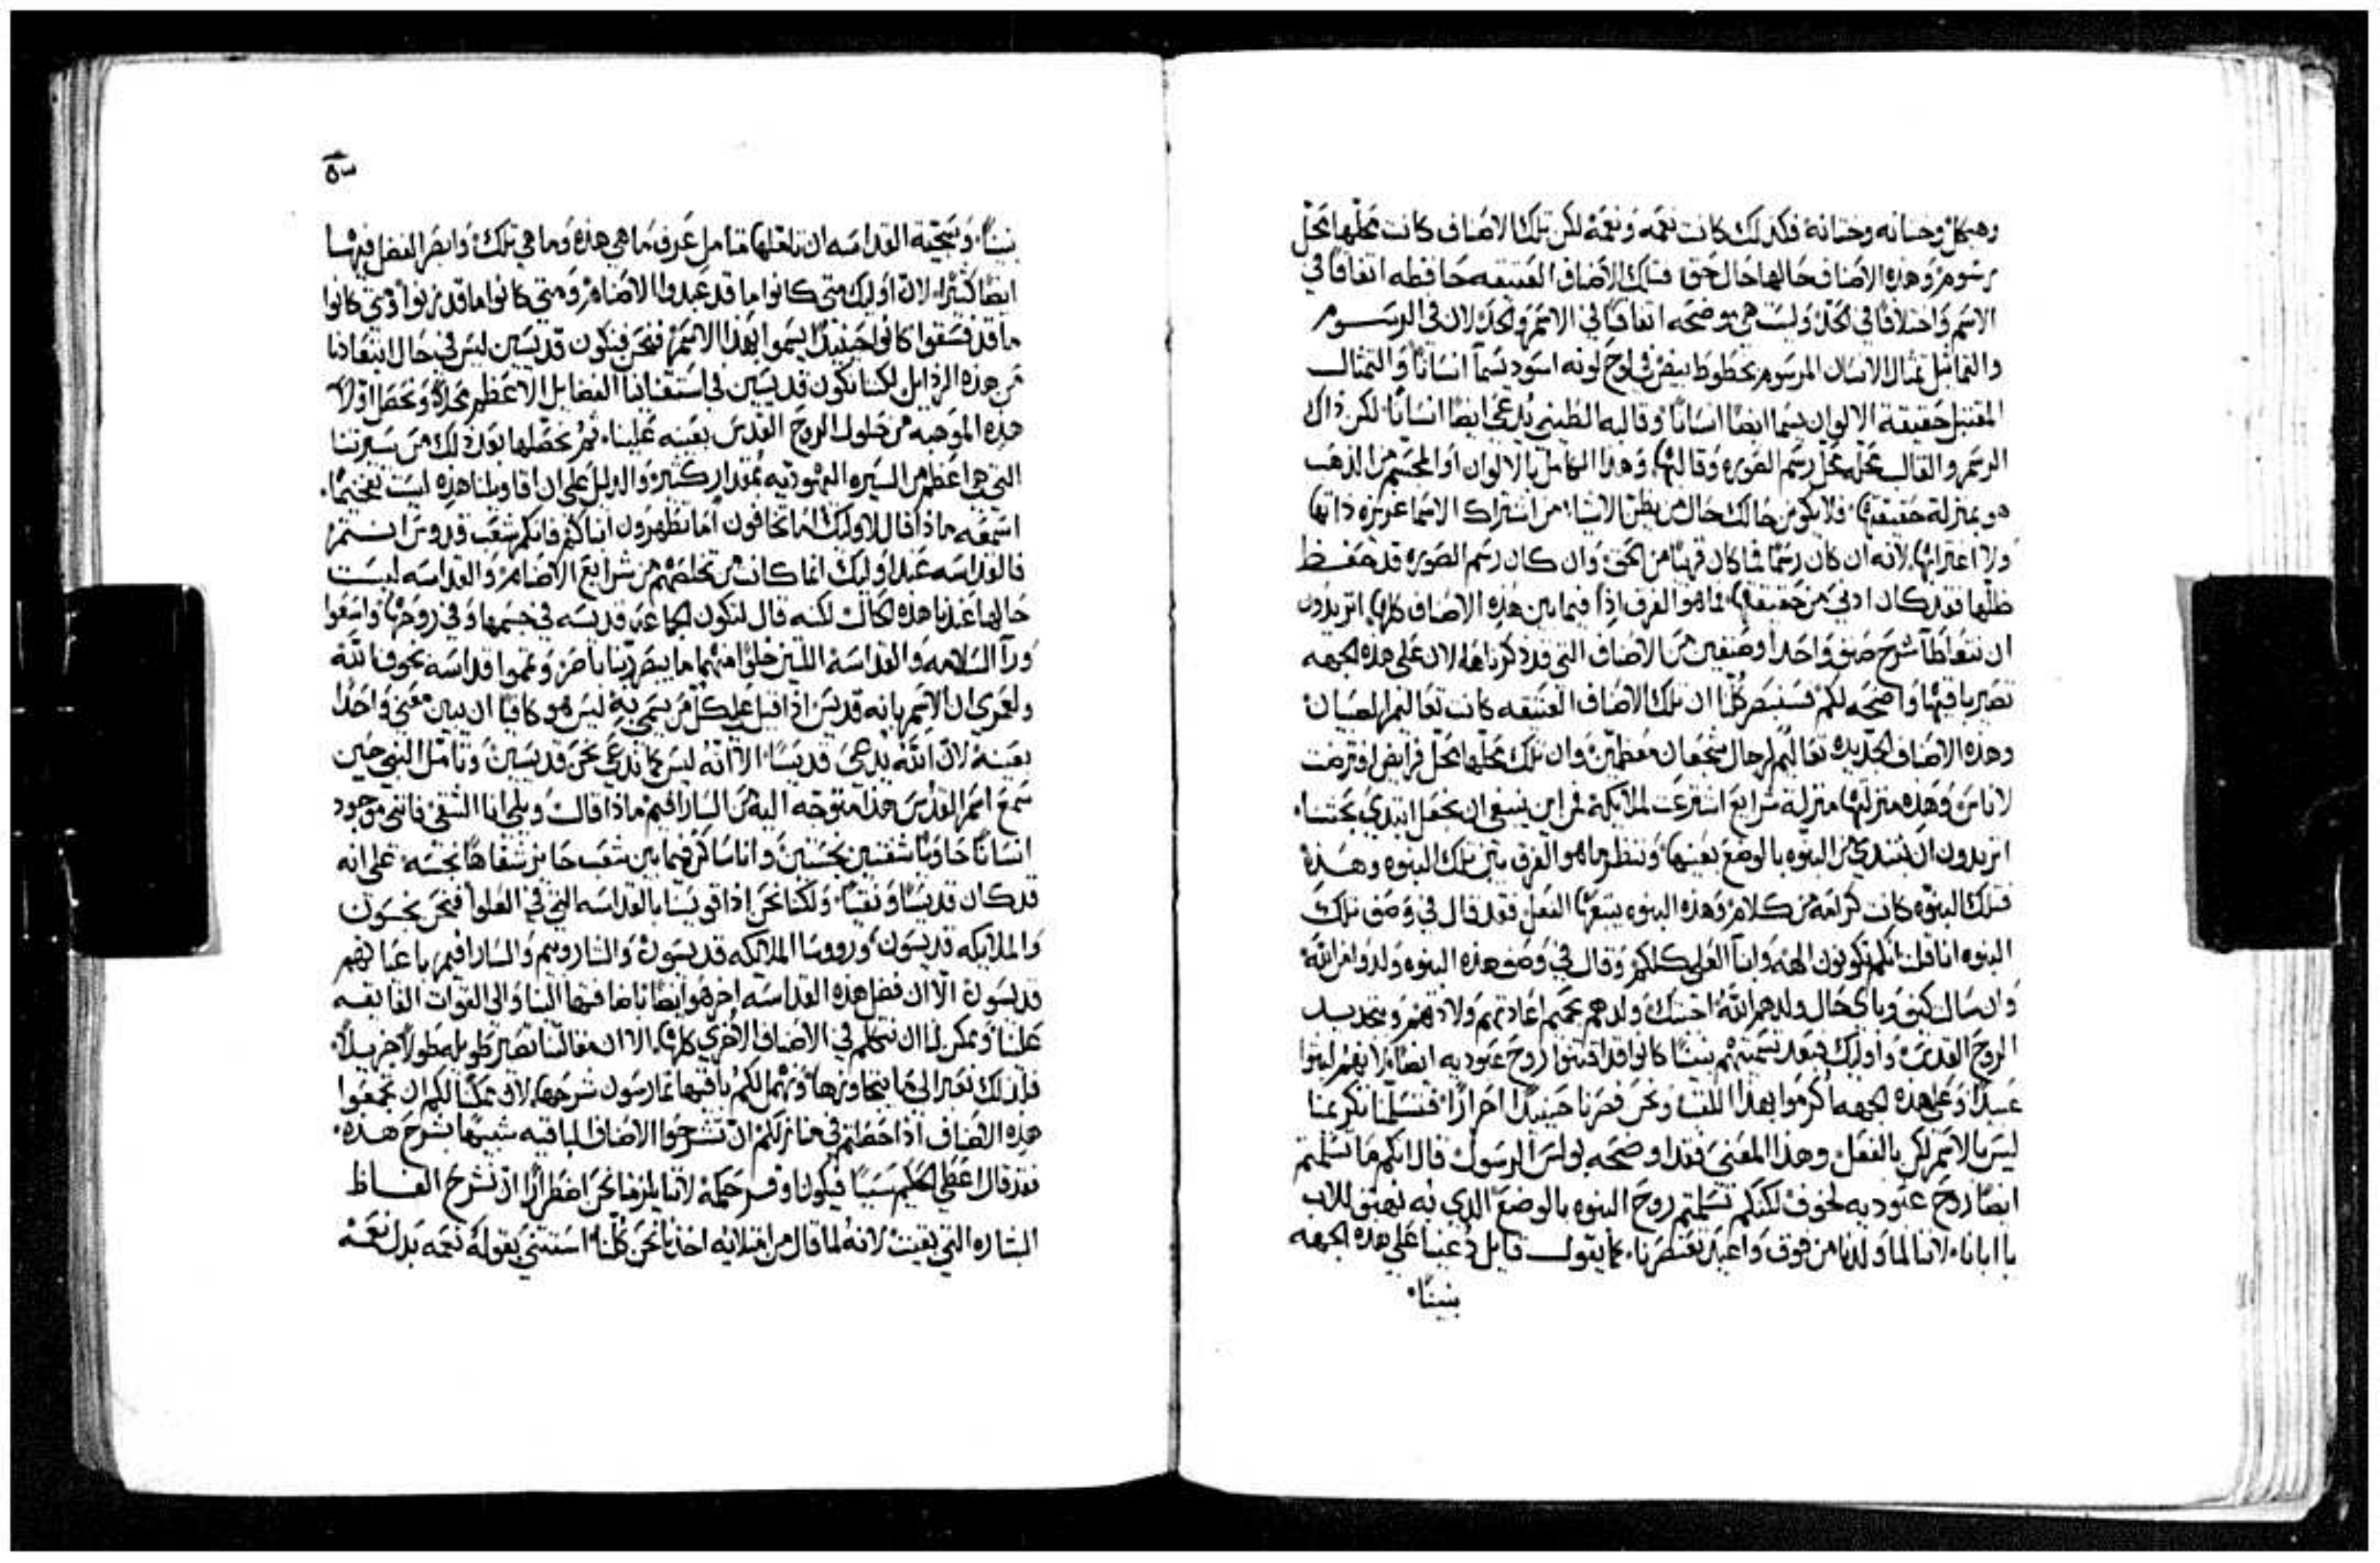 وهيكل وختانه وختانة فكذلك كانت نعمه ونعمة لكن تلك الاصناف كانت محلها محل
رسوم وهذه الاصناف حالها حال حق فتلك الاصناف العتيقه حافظه اتفاقا في
الاسم واختلافا في الحد وليست هي موضحه اتفاقا في الاسم والحد لان في الرسوم
والتماثيل تمثال الانسان المرسوم بخطوط بيض لونه اسود يسما انسانا والتمثال
المقتبل حقيقة الالوان يسما ايضا انسانا وقالبه الطيني يدعى ايضا انسانا لكن ذاك
الرسم والقالب محله محل رسم الصوره وقالبها وهذا الكامل بالالوان او المجسم من الذهب
هو بمنزلة حقيقتها فلا يكون حالك حال من يظن الاشيا من اشتراك الاسما غريزه ذاتها
ولا اغترابها لانه ان كان رسما فما كان غريبا من الحق وان كان رسم الصوره قد حفظ
ظلها فقد كان ادنى من حقيقتها فما هو الفرق اذا فيما بين هذه الاصناف كلها اتريدون
ان نتعاطا شرح صنف واحد او صنفين من الاصناف التي قد ذكرناها لان على هذه الجهه
تصير باقيها واضحه لكم فسنبصر كلنا ان تلك الاصناف العتيقه كانت تعاليم الصبيان
وهذه الاصناف الجديده تعاليم لرجال شجعان معظمين وان تلك محلها محل فرايض افترضت
لاناس وهذه منزلتها منزلة شرايع اشترعت لملايكه فمن اين ينبغي ان نجعل ابتدي بحثنا
اتريدون ان نبتدي من البنوه بالوضع بعينها وننظر ما هو الفرق بين تلك البنوه وهذه
فتلك البنوه كانت كرامه من كلام وهذه البنوه يتبعها الفعل فقد قال في وصف تلك
البنوه انا قلت انكم تكونون الهه وابنا العلي كلكم وقال في وصف هذه البنوه ولدوا من الله
وان سال كيف وباي حال ولدهم الله احبتك ولدهم بحميم اعادتهم ولادتهم وبتجديد
الروح القدس واوليك فبعد تسميتهم بنينا كانوا قد اقتنوا روح عبوديه ايضا لانهم لبثوا
عبيدا وعلى هذه الجهه اكرموا بهذا اللقب ونحن فصرنا حينيذ احرارا فتسلمنا تكريمنا
ليس بالاسم لكن بالفعل وهذا المعنى فقد اوضحه بولس الرسول قال انكم ما تسلمتم
ايضا روح عبوديه لخوف لكنكم تسلمتم روح البنوه بالوضع الذي به نهتف للاب
يا ابانا لاننا لما ولدنا من فوق واعيد تفطرنا كما يقول قايل دعينا على هذه الجهه
بنينا
٥٣
بنينا وسجية القداسه ان تامّلها متامل عرف ما هي هذه وما هي تلك وابصر الفضل فيها
ايضا كثيرا لان اوليك متى كانوا ما قد عبدوا الاصنام ومتى كانوا ما قد زنوا ومتى كانوا
ما قد فسقوا كانوا حينيذ يسموا بهذا الاسم فنحن فنكون قديسين ليس في حال ابتعادنا
من هذه الرذايل لكننا نكون قديسين في استقنانا الفضايل الاعظم مجدا ونحصل اولا
هذه الموهبه من حلول الروح القدس بعينه علينا ثم نحصلها بعد ذلك من سيرتنا
التي هي اعظم من السيره اليهوديه بمقدار كثير والدليل على ان اقاويلنا هذه ليست تفخيما
اسمعه ماذا قال لاوليك اما تخافون اما تطهرون اناكم فانكم شعب قدوس انتم
فالقداسه عند اوليك انما كانت من تخلصهم من شرايع الاصنام والقداسه ليست
حالها عندنا هذه الحال لكنه قال لتكون الجماعه قديسه في جسمها وفي روحها واسعوا
ورا السلامه والقداسه اللتين خلوا منهما ما يبصر ربنا باصر وتمموا قداسه بخوف الله
ولعمري ان الاسم بانه قديس اذا قيل على كل من يسمى به ليس هو كافيا ان يبين معنى واحدا
بعينه لان الله يدعى قديسا الا انه ليس كما ندعى نحن قديسين وتامل النبي حين
سمع اسم القدس هذا متوجه اليه من السارافيم ماذا قال ويلي انا الشقي فانني موجود
انسانا حاويا شفتين نجستين وانا ساكن فيما بين شعب حايز شفاها نجسه على انه
قد كان قديسا ونقيا ولكننا نحن اذا قويسنا بالقداسه التي في العلوا فنحن نجسون
والملايكه قديسون وروسا الملايكه قديسون والشاروبيم والسارافيم باعيانهم
قديسون الا ان فضل هذه القداسه اخر هو ايضا باضافتها الينا والى القوات الفايقه
علينا ويمكن لنا ان نتكلم في الاصناف الاخرى كلها الا ان مقالتنا تصير طويله طولا جزيلا
فلذلك نعبر الى ما يتجاوزها ونهمل لكم باقيها تمارسون شرحها لان ممكنا لكم ان تجمعوا
هذه الاصناف اذا حصلتم في منازلكم ان تشرحوا الاصناف الباقيه شبيها بشرح هذه
فقد قال اعطي الحكيم سببا فيكون اوفر حكمة لاننا يلزمنا نحن اضطرارا ان نشرح الفاظ
البشاره التي بقيت لانه لما قال من امتلايه اخذنا نحن كلنا استثنى بقوله نعمه بدل نعمه